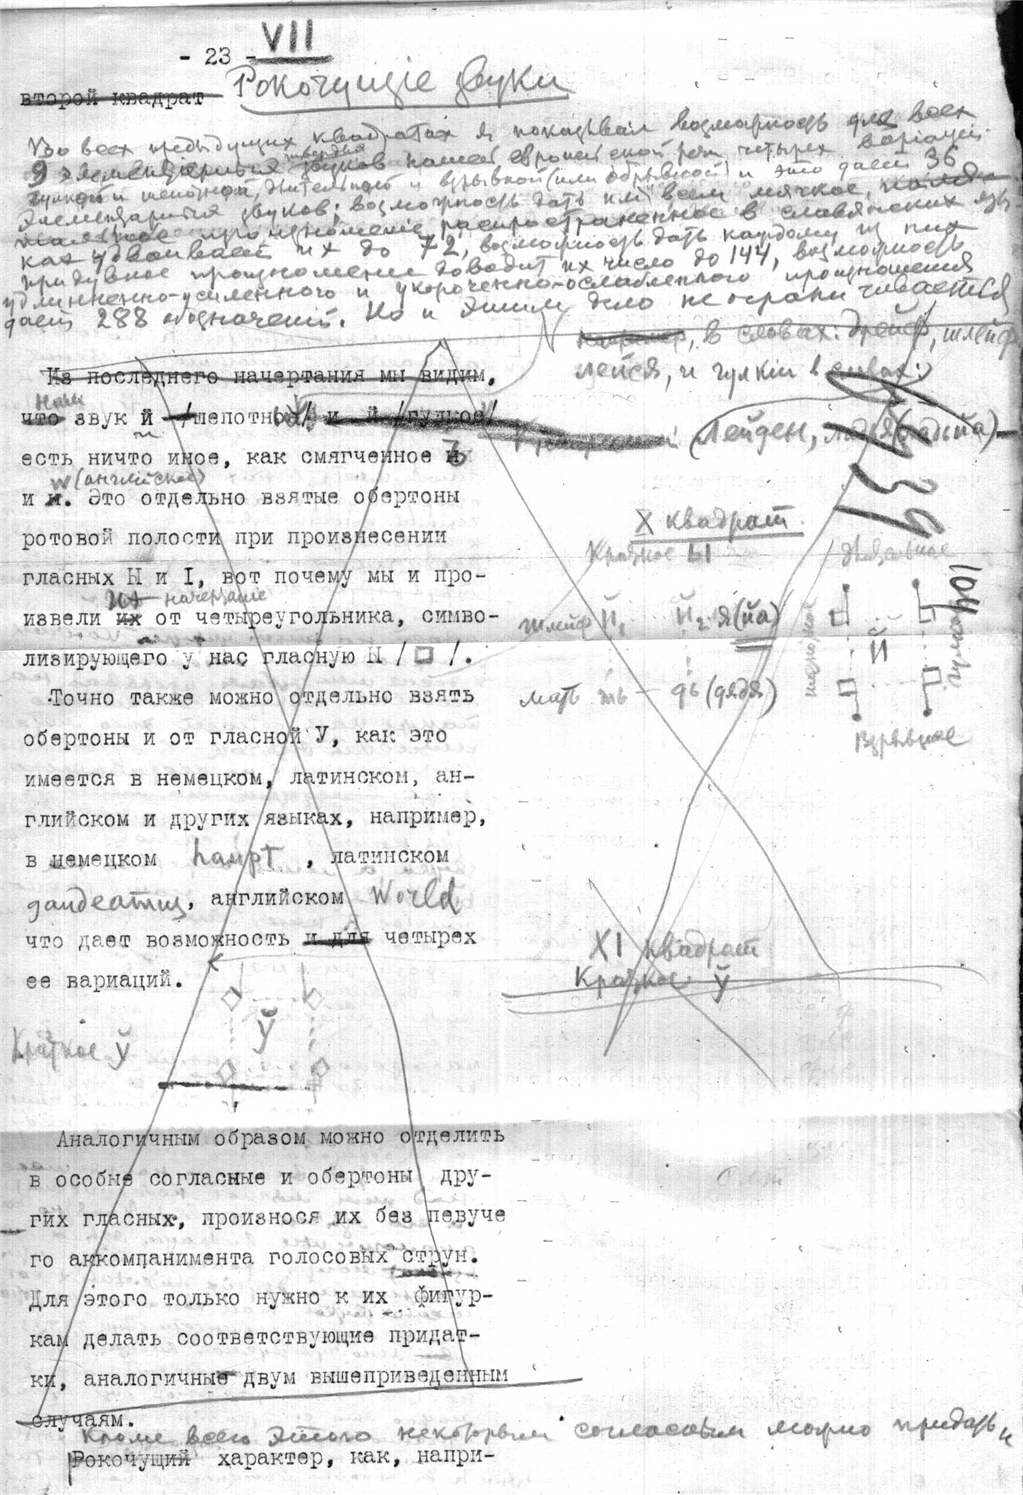 - 23 -
VII
второй квадрат
Рокочущіе звуки
Во всех предыдущих квадратах я показывал возможность для всех
9 элементарных твердых звуков нашей европейской речи четырех варіацій:
и взрывной (или обрывной) и это дает 36
элементарных звуков; возможность дать им всем мягкое,
произношеніе, распространенное в славянских язы-
ках удваивает их до 72, возможность дать каждому из них
придувное произношеніе доводит их число до 144, возможность
удлинненно-усиленного и укороченно-ослабленного произношения
дает 288 обозначеній. Но и этим дело не ограничивается
, в словах: Дрейф, шлейф,
лейся, и гулкій в словах:
Лейден, (дядьйа)
Из последнего начертания мы видим,
что звук й /шепотное/ и й /гудкое/
есть ничто иное, как смягченное
w (английское)
и и. Это отдельно взятые обертоны
ротовой полости при произнесении
гласных Ы и I, вот почему мы и про-
начертаніе
извели их от четыреугольника, симво-
лизирующего у нас гласную Ы / □ /.
Точно также можно отдельно взять
обертоны и от гласной У, как это
имеется в немецком, латинском, ан-
глийском и других языках, например,
в немецком haupt, латинском
gaudeamus, английском World
что дает возможность и для четырех
ее вариаций.
39
X квадрат
Краткое Ы
104
Длительное
шлейф Й₁ Й₂ я (йа)
Й
мать ть — дь (дядя)
Взрывное
XI квадрат
Краткое ў
Краткое ў
ў
Аналогичным образом можно отделить
в особые согласные и обертоны дру-
гих гласных, произнося их без певуче
го аккомпанимента голосовых струн.
Для этого только нужно к их фигур-
кам делать соответствующие придат-
ки, аналогичные двум вышеприведенным
случаям.
Кроме всего этого некоторым согласным можно придать и
Рокочущий характер, как, напри-